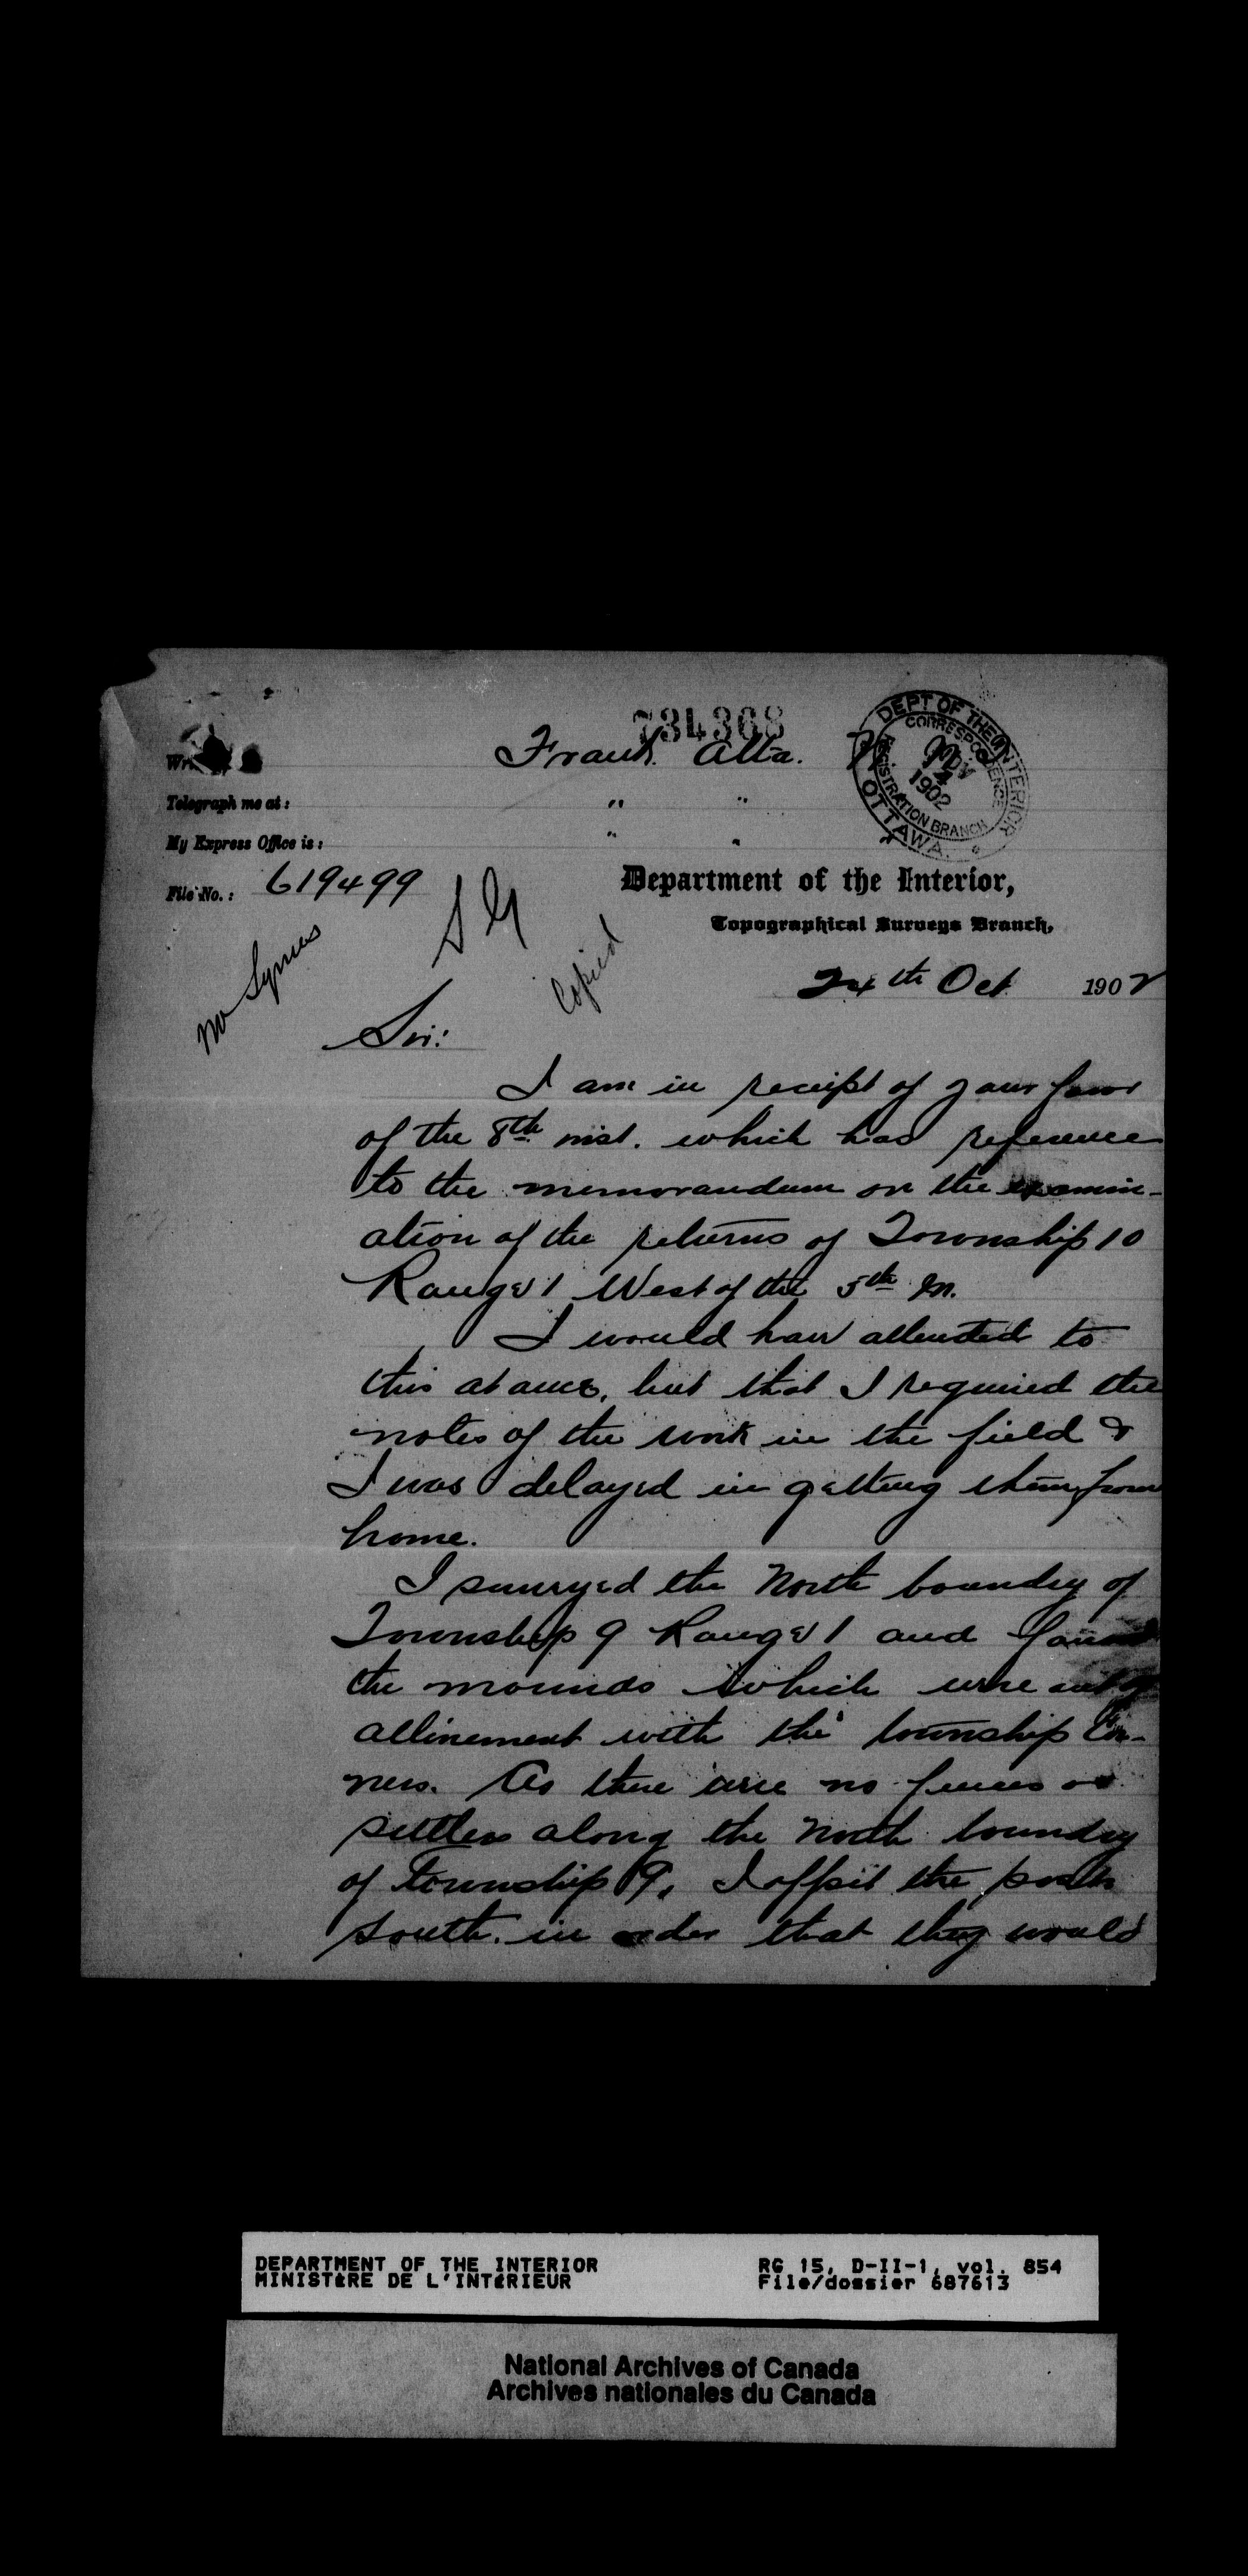 734368
Frank. Alta.
DEPT OF THE INTERIOR
CORRESPONDENCE
NOV
4
1902
REGISTRATION BRANCH
OTTAWA.
Telegraph me at: " "
My Express Office is: " "
File No.: 619499
S G
Department of the Interior,
Topographical Surveys Branch,
Copied
Mr Symes
24th Oct 1902
Sir:
I am in receipt of your favor
of the 8th inst. which has reference
to the memorandum on the examin-
ation of the returns of Township 10
Range 1 West of the 5th M.
I would have attended to
this at once, but that I required the
notes of the work in the field &
I was delayed in getting them from
home.
I surveyed the North boundry of
Township 9 Range 1 and found
the mounds which were out of
allinement with the township Cor-
ners. As there are no fences or
settlers along the North boundry
of Township 9, I offsit the posts
South. in order that they would
DEPARTMENT OF THE INTERIOR
MINISTÈRE DE L'INTÉRIEUR
RG 15, D-II-1, vol. 854
File/dossier 687613
National Archives of Canada
Archives nationales du Canada